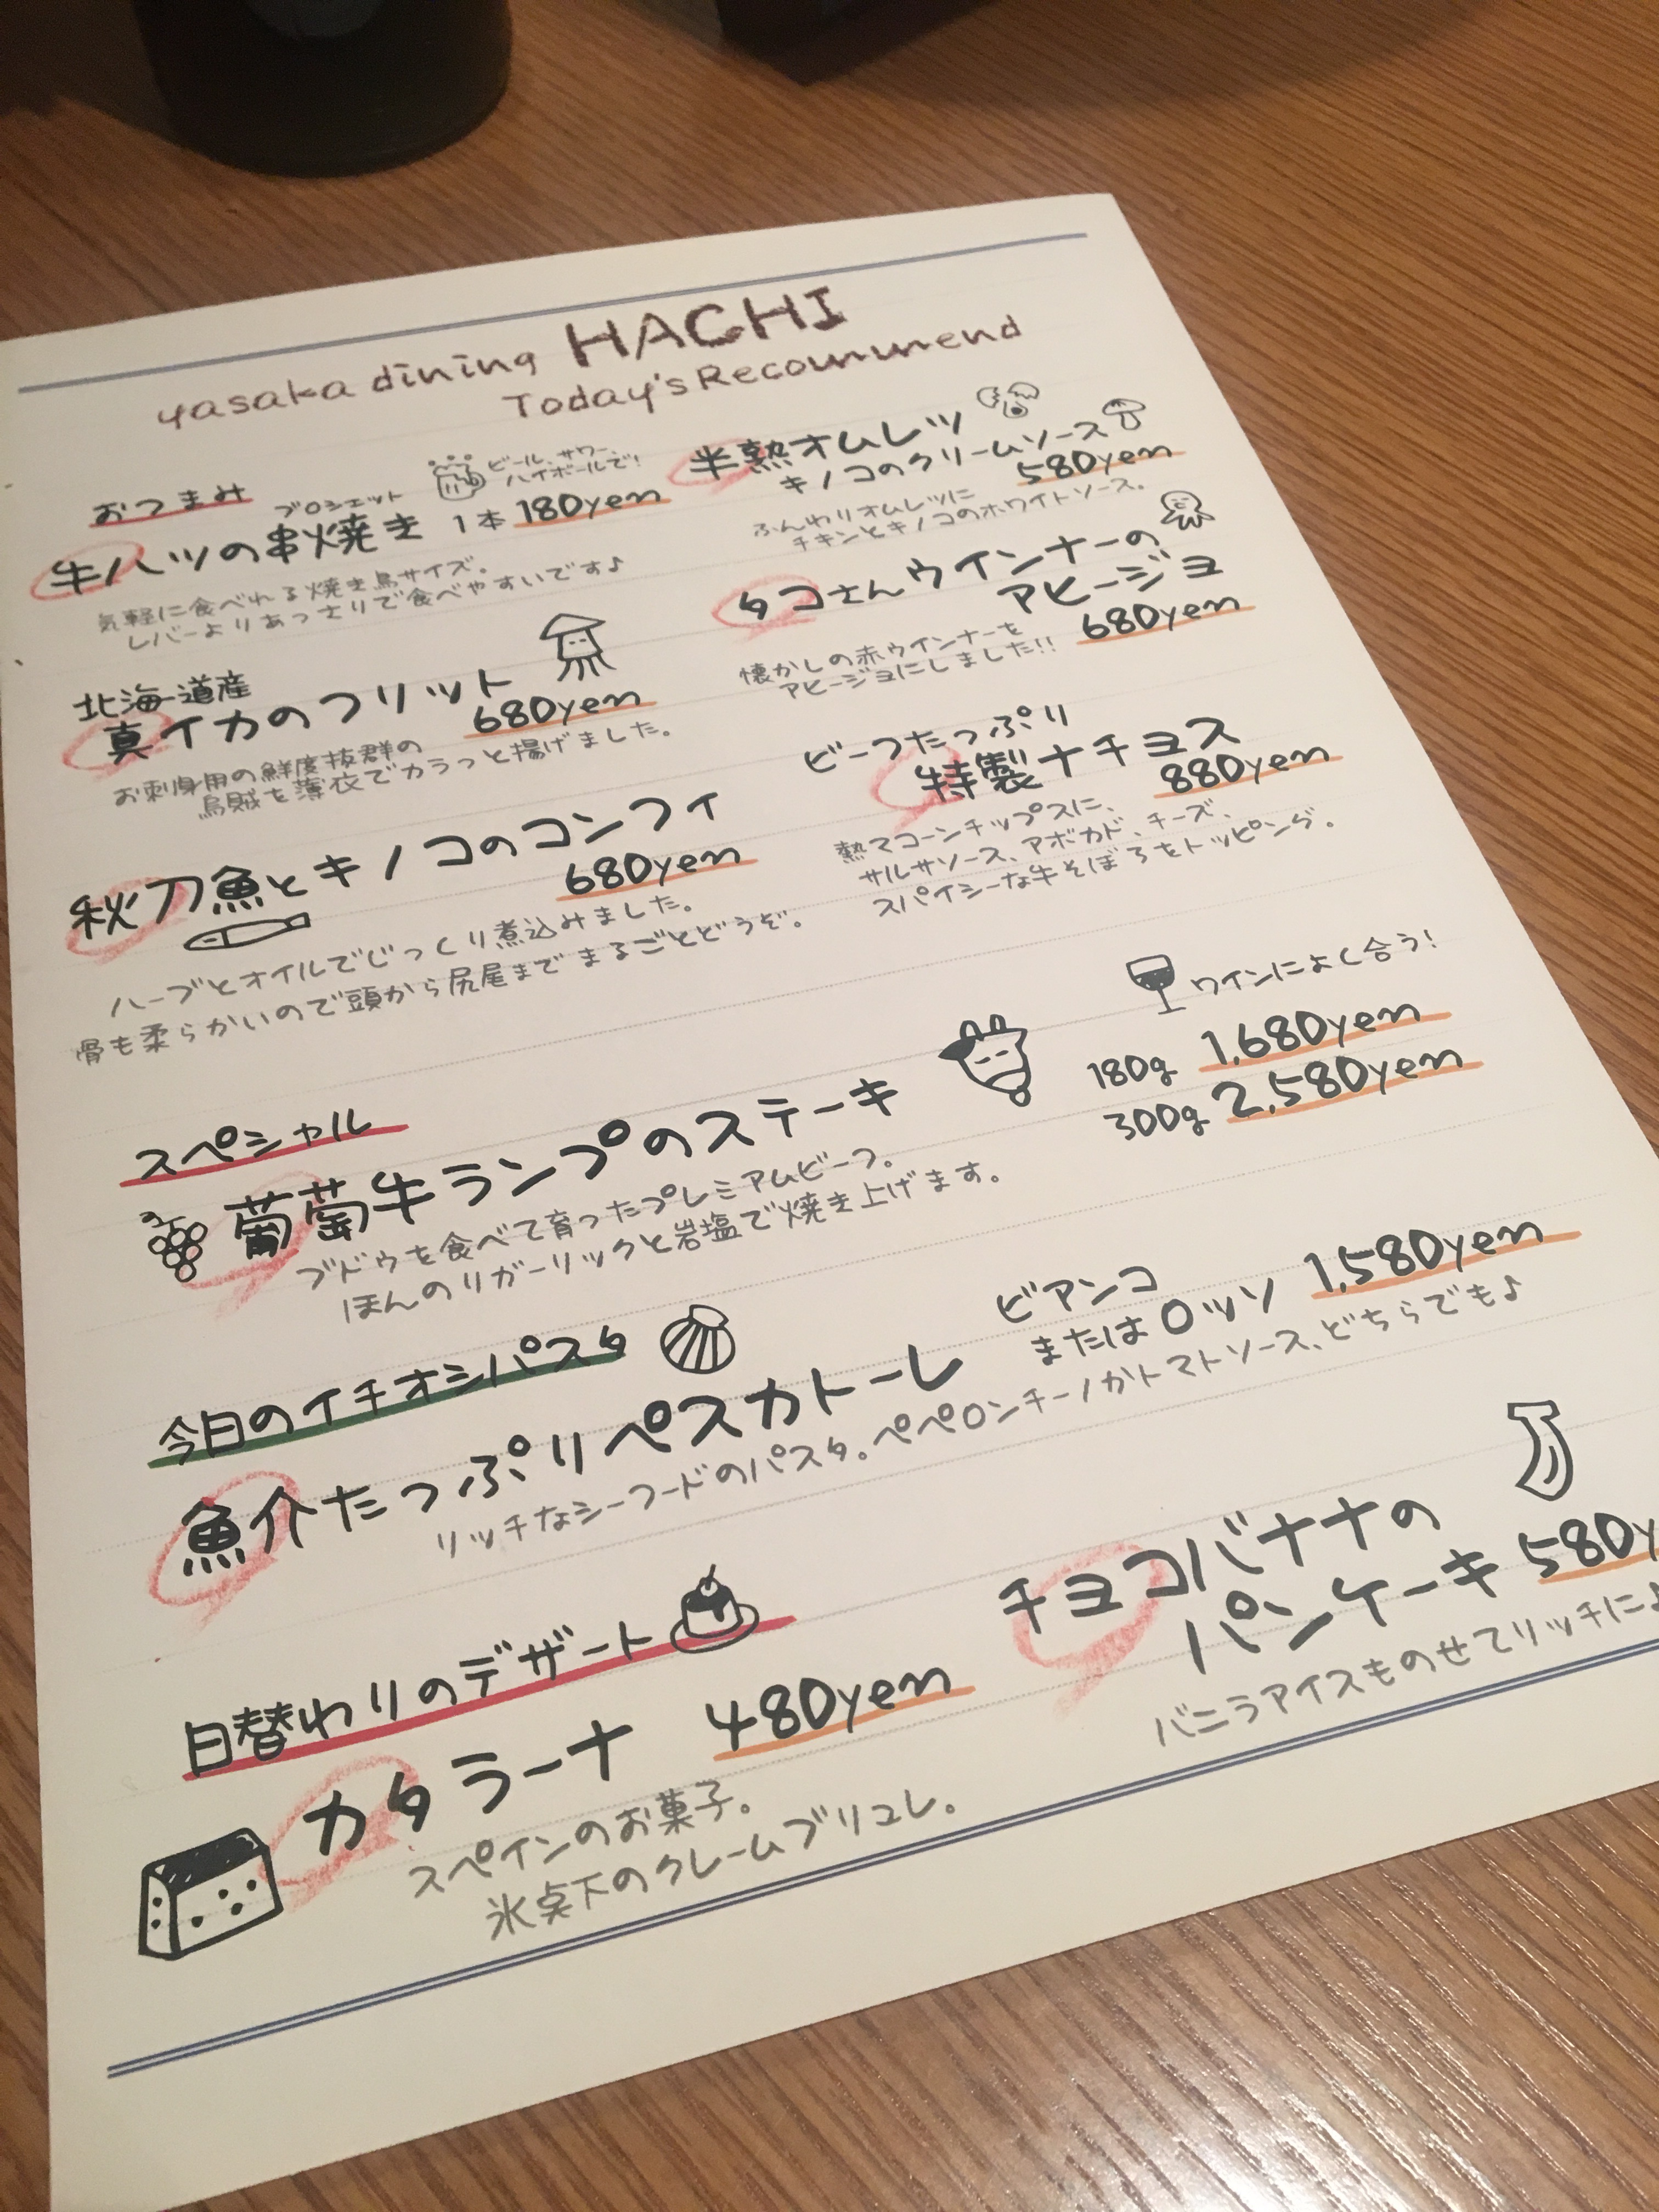 yasaka dining HACHI
Today's Recommend
おつまみ
ビール、サワー、
ハイボールで!
ブロシェット
牛ハツの串焼き 1本 180yen
気軽に食べれる焼き鳥サイズ。
レバーよりあっさりで食べやすいです♪
北海道産
真イカのフリット
680yen
お刺身用の鮮度抜群の
烏賊を薄衣でカラっと揚げました。
秋刀魚とキノコのコンフィ
680yen
ハーブとオイルでじっくり煮込みました。
骨も柔らかいので頭から尻尾までまるごとどうぞ。
半熟オムレツ
キノコのクリームソース
580yen
ふんわりオムレツに
チキンとキノコのホワイトソース。
タコさんウインナーの
アヒージョ
680yen
懐かしの赤ウインナーを
アヒージョにしました!!
ビーフたっぷり
特製ナチョス
880yen
熱々コーンチップスに、
サルサソース、アボカド、チーズ、
スパイシーな牛そぼろをトッピング。
スペシャル
ワインによく合う!
葡萄牛ランプのステーキ
180g 1,680yen
300g 2,580yen
ブドウを食べて育ったプレミアムビーフ。
ほんのりガーリックと岩塩で焼き上げます。
今日のイチオシパスタ
魚介たっぷりペスカトーレ
ビアンコ
またはロッソ 1,580yen
リッチなシーフードのパスタ。ペペロンチーノかトマトソース、どちらでも♪
日替わりのデザート
カタラーナ 480yen
スペインのお菓子。
氷点下のクレームブリュレ。
チョコバナナの
パンケーキ 580y
バニラアイスものせてリッチに♪